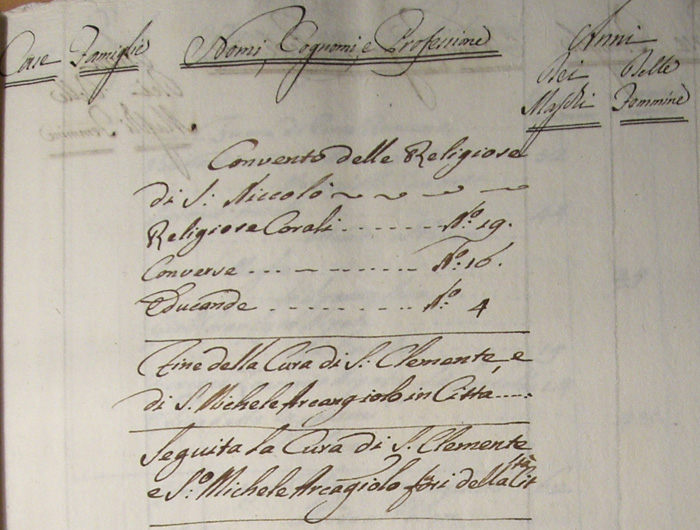 Case Famiglie Nomi, Cognomi, e Professione Anni
Dei Delle
Maschi Femmine
Convento delle Religiose
di S: Niccolò
Religiose Corali ........ No: 19.
Converse ........ No: 16.
Educande ........ No 4
Fine della Cura di S: Clemente, e
di S: Michele Arcangiolo in Citta ....
Seguita la Cura di S: Clemente
e S:o Michele Arcagiolo fori della Cit
tà